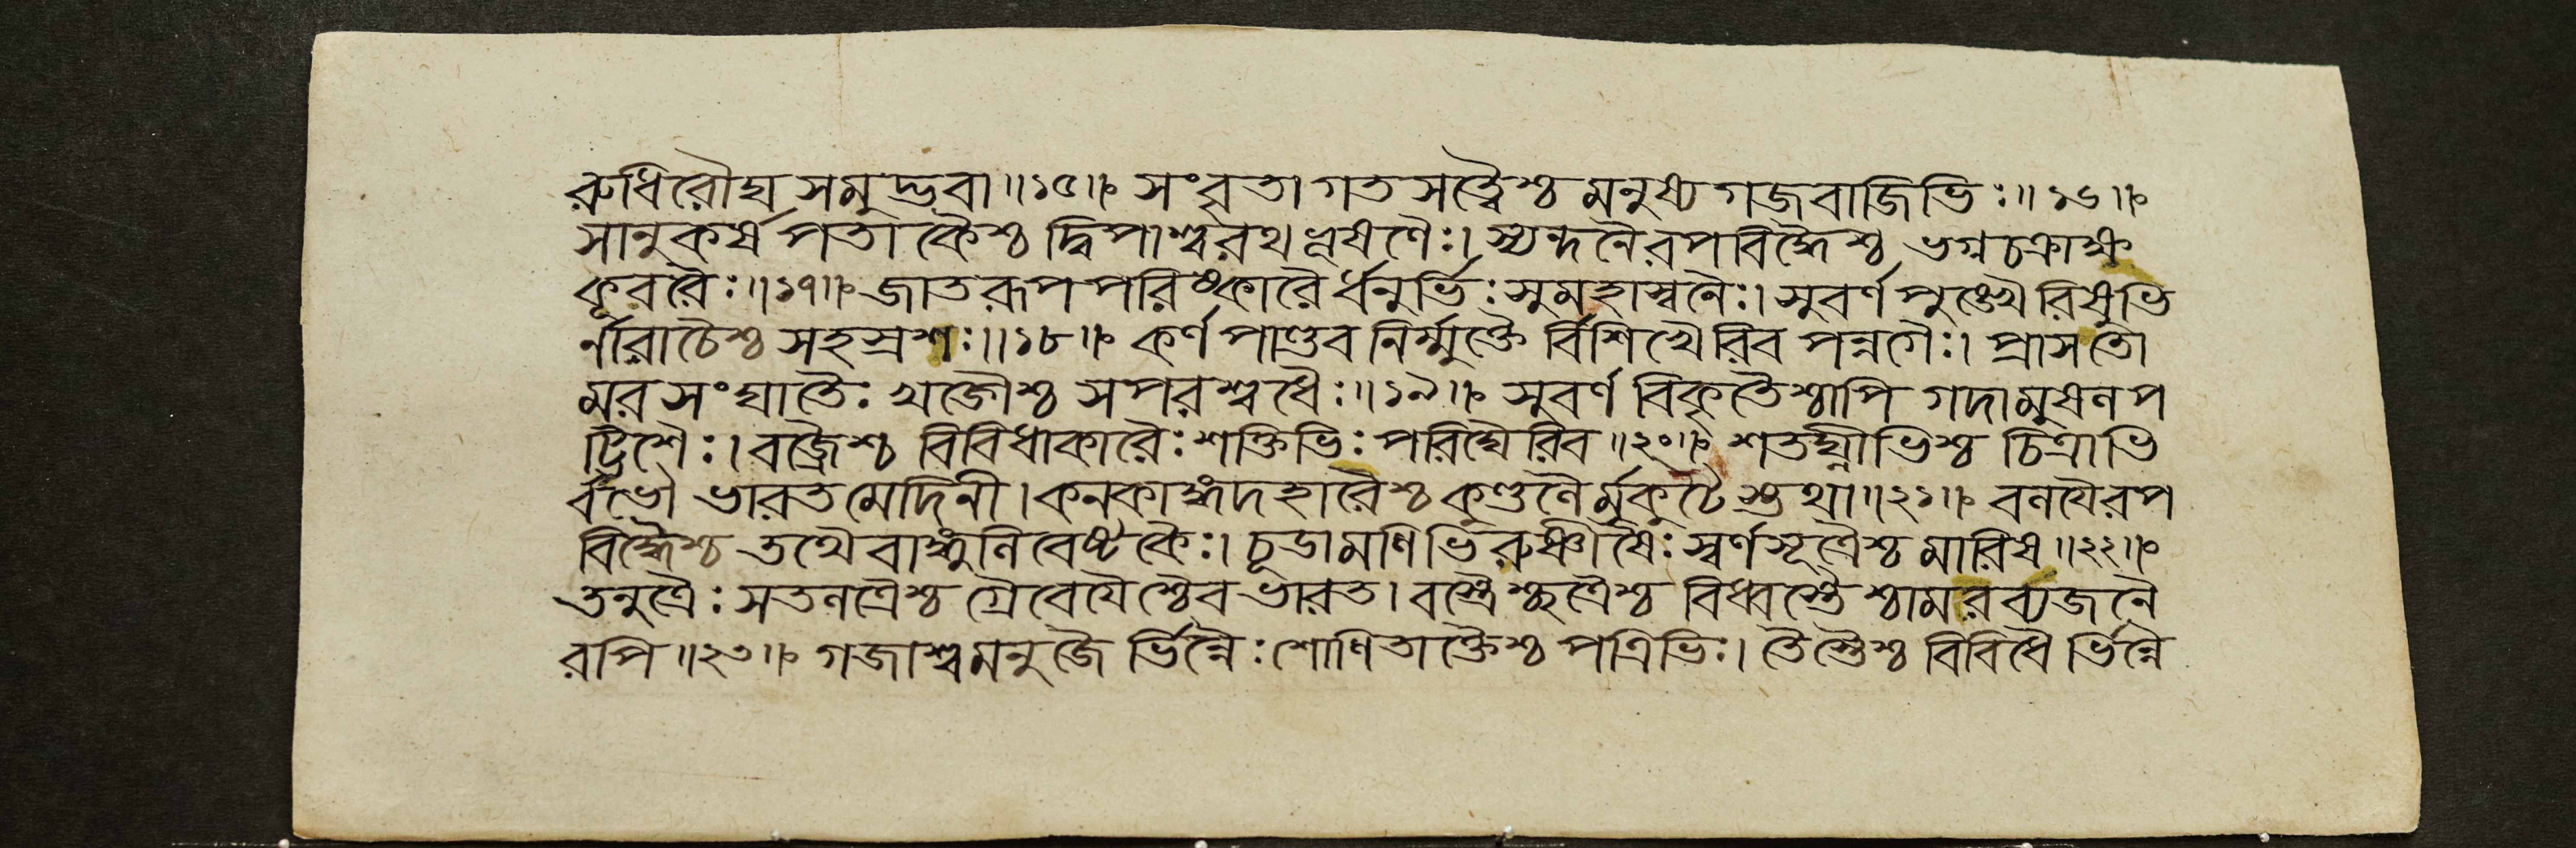 রুধিরৌঘ সমুদ্ভবা॥১৫॥ সংবৃতা গতসত্ত্বৈশ্চ মনুষ্য গজবাজিভিঃ॥১৬॥
সানুকর্ষ পতাকৈশ্চ দ্বিপাশ্বরথ ভূষণৈঃ। স্যন্দনৈরপবিদ্ধৈশ্চ ভগ্নচক্রাক্ষ
কূবরৈঃ॥১৭॥ জাতরূপ পরিষ্কারৈর্ধনুর্ভিঃ সুমহাস্বনৈঃ। সুবর্ণ পুঙ্খৈরিষুভি
র্নারাচৈশ্চ সহস্রশঃ॥১৮॥ কর্ণ পাণ্ডব নির্ম্মুক্তৈ র্বিশিখৈরিব পন্নগৈঃ। প্রাসতো
মর সংঘাতৈঃ খড়্গৈশ্চ সপরশ্বধৈঃ॥১৯॥ সুবর্ণ বিকৃতৈশ্চাপি গদামুষলপ
ট্টিশৈঃ। বজ্রৈশ্চ বিবিধাকারৈঃ শক্তিভিঃ পরিঘৈরিব॥২০॥ শতঘ্নীভিশ্চ চিত্রাভি
র্বভৌ ভারত মেদিনী। কনকাঙ্গদহারৈশ্চ কুণ্ডলৈর্মুকুটৈস্তথা॥২১॥ বলয়ৈরপ
বিদ্ধৈশ্চ তথৈবাঙ্গুলিবেষ্টকৈঃ। চূডামণিভিরুষ্ণীষৈঃ স্বর্ণসূত্রৈশ্চ মারিষ॥২২॥
তনুত্রৈঃ সতলত্রৈশ্চ গ্রৈবেয়ৈশ্চৈব ভারত। বস্ত্রৈশ্ছত্রৈশ্চ বিধ্বস্তৈশ্চামরব্যজনৈ
রপি॥২৩॥ গজাশ্বমনুজৈ র্ভিন্নৈঃ শোণিতাক্তৈশ্চ পত্রিভিঃ। তৈস্তৈশ্চ বিবিধৈ র্ভিন্নৈ